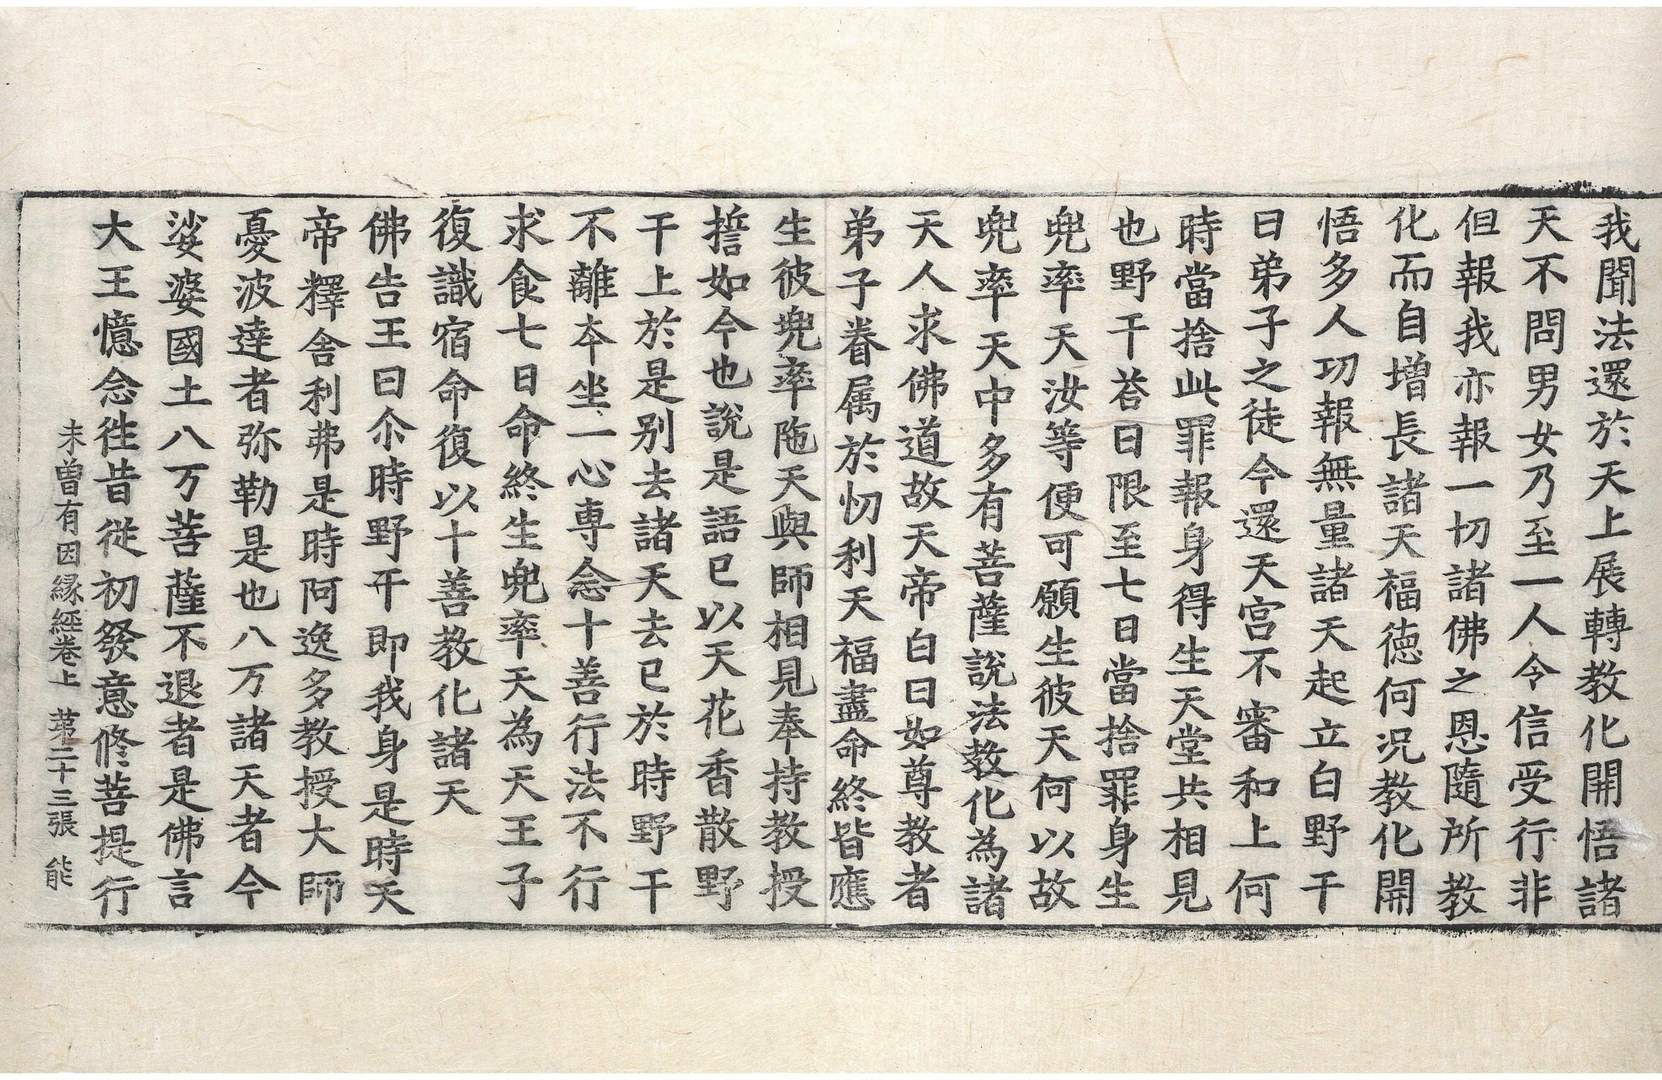 我聞法還於天上展轉教化開悟諸
天不問男女乃至一人令信受行非
但報我亦報一切諸佛之恩隨所教
化而自增長諸天福德何況教化開
悟多人功報無量諸天起立白野干
曰弟子之徒今還天宮不審和上何
時當捨此罪報身得生天堂共相見
也野干荅曰限至七日當捨罪身生
兜率天汝等便可願生彼天何以故
兜率天中多有菩薩說法教化為諸
天人求佛道故天帝白曰如尊教者
弟子眷属於忉利天福盡命終皆應
生彼兜率陁天與師相見奉持教授
誓如今也說是語已以天花香散野
干上於是別去諸天去已於時野干
不離夲坐一心專念十善行法不行
求食七日命終生兜率天為天王子
復識宿命復以十善教化諸天
佛告王曰尒時野干即我身是時天
帝釋舍利弗是時阿逸多教授大師
憂波達者弥勒是也八万諸天者今
娑婆國土八万菩薩不退者是佛言
大王憶念徃昔從初發意修菩提行
未曽有因緣經卷上 苐二十三張 能